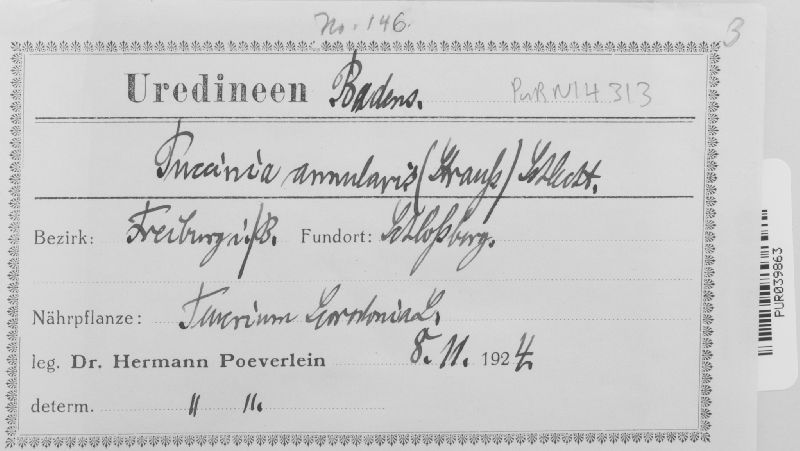 No. 146.
3
Uredineen Badens.
PUR N14313
Puccinia annularis (Strauß) Schlecht.
Bezirk: Freiburg i/B. Fundort: Schloßberg.
Nährpflanze: Teucrium Scorodonia L.
leg. Dr. Hermann Poeverlein 8. 11. 1924.
determ. " ".
PUR039863